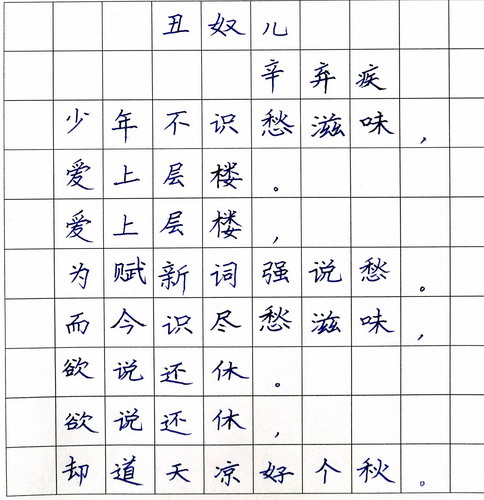 丑奴儿
辛弃疾
少年不识愁滋味，
爱上层楼。
爱上层楼，
为赋新词强说愁。
而今识尽愁滋味，
欲说还休。
欲说还休，
却道天凉好个秋。